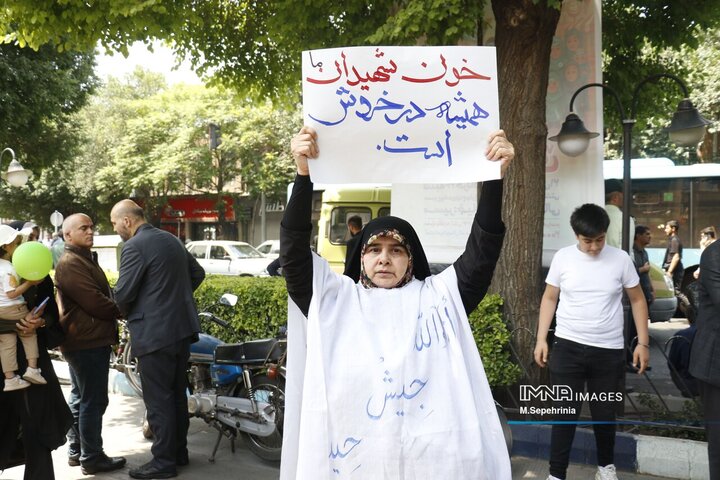 خون شهیدان ما
همیشه در خروش
است.
الله
جیش
IMNA IMAGES
M.Sepehrinia